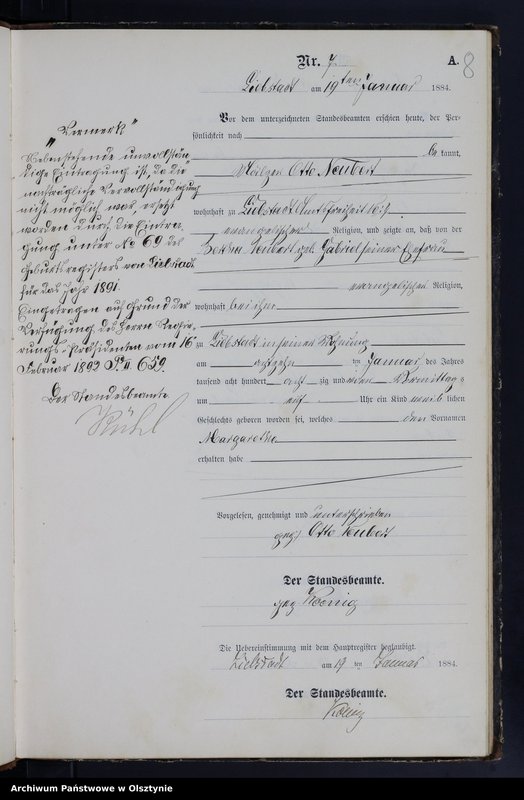 Nr. 7
A.
8
Liebstadt am 19ten Januar 1884.
Vor dem unterzeichneten Standesbeamten erschien heute, der Per-
sönlichkeit nach
be kannt,
Otto Neubert
wohnhaft zu Liebstadt
evangelischer Religion, und zeigte an, daß von der
Bertha Neubert geb. Gabriel seiner Ehefrau
evangelischer Religion,
wohnhaft bei ihm
zu Liebstadt in seiner Wohnung
am achtzehn ten Januar des Jahres
tausend acht hundert acht zig und vier Vormittags
um Uhr ein Kind weib lichen
Geschlechts geboren worden sei, welches den Vornamen
Margarethe
erhalten habe
Vorgelesen, genehmigt und unterschrieben
gez. Otto Neubert
Der Standesbeamte.
gez Koenig
Die Uebereinstimmung mit dem Hauptregister beglaubigt.
Liebstadt am 19 ten Januar 1884.
Der Standesbeamte.
Koenig
"Vermerk"
Nebenstehende unvollstän-
dige Eintragung ist, da die
nachträgliche Vervollständigung
nicht möglich war, ersetzt
worden durch die Eintra-
gung unter No 69 des
Geburtsregisters von Liebstadt
für das Jahr 1891.
Eingetragen auf Grund der
Verfügung des Herrn Regie-
rungs-Präsidenten vom 16
Februar 1892
Der Standesbeamte
Archiwum Państwowe w Olsztynie